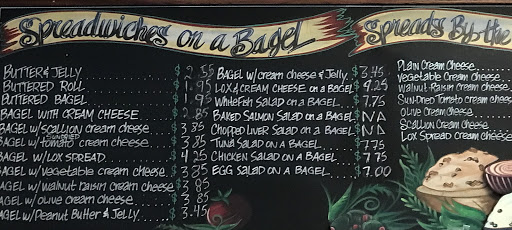 Spreadwiches on a Bagel
BUTTER & JELLY $ 2.55
BUTTERED ROLL $ 1.95
BUTTERED BAGEL $ 1.95
BAGEL WITH CREAM CHEESE $ 2.85
BAGEL W/SCALLION CREAM CHEESE $ 3.85
SUNDRIED
BAGEL W/TOMATO CREAM CHEESE
BAGEL W/LOX SPREAD $ 4.25
BAGEL W/VEGETABLE CREAM CHEESE $ 3.85
BAGEL W/WALNUT RAISIN CREAM CHEESE $ 3.85
BAGEL W/OLIVE CREAM CHEESE $ 3.85
BAGEL W/PEANUT BUTTER & JELLY $ 3.45
BAGEL W/CREAM CHEESE & JELLY $ 3.45
LOX & CREAM CHEESE ON A BAGEL $ 9.25
WHITEFISH SALAD ON A BAGEL $ 7.75
BAKED SALMON SALAD ON A BAGEL $ N/A
CHOPPED LIVER SALAD ON A BAGEL $ N/A
TUNA SALAD ON A BAGEL $ 7.75
CHICKEN SALAD ON A BAGEL $ 7.75
EGG SALAD ON A BAGEL $ 7.00
Spreads By the
PLAIN CREAM CHEESE
VEGETABLE CREAM CHEESE
WALNUT RAISIN CREAM CHEESE
SUN-DRIED TOMATO CREAM CHEESE
OLIVE CREAM CHEESE
SCALLION CREAM CHEESE
LOX SPREAD CREAM CHEESE